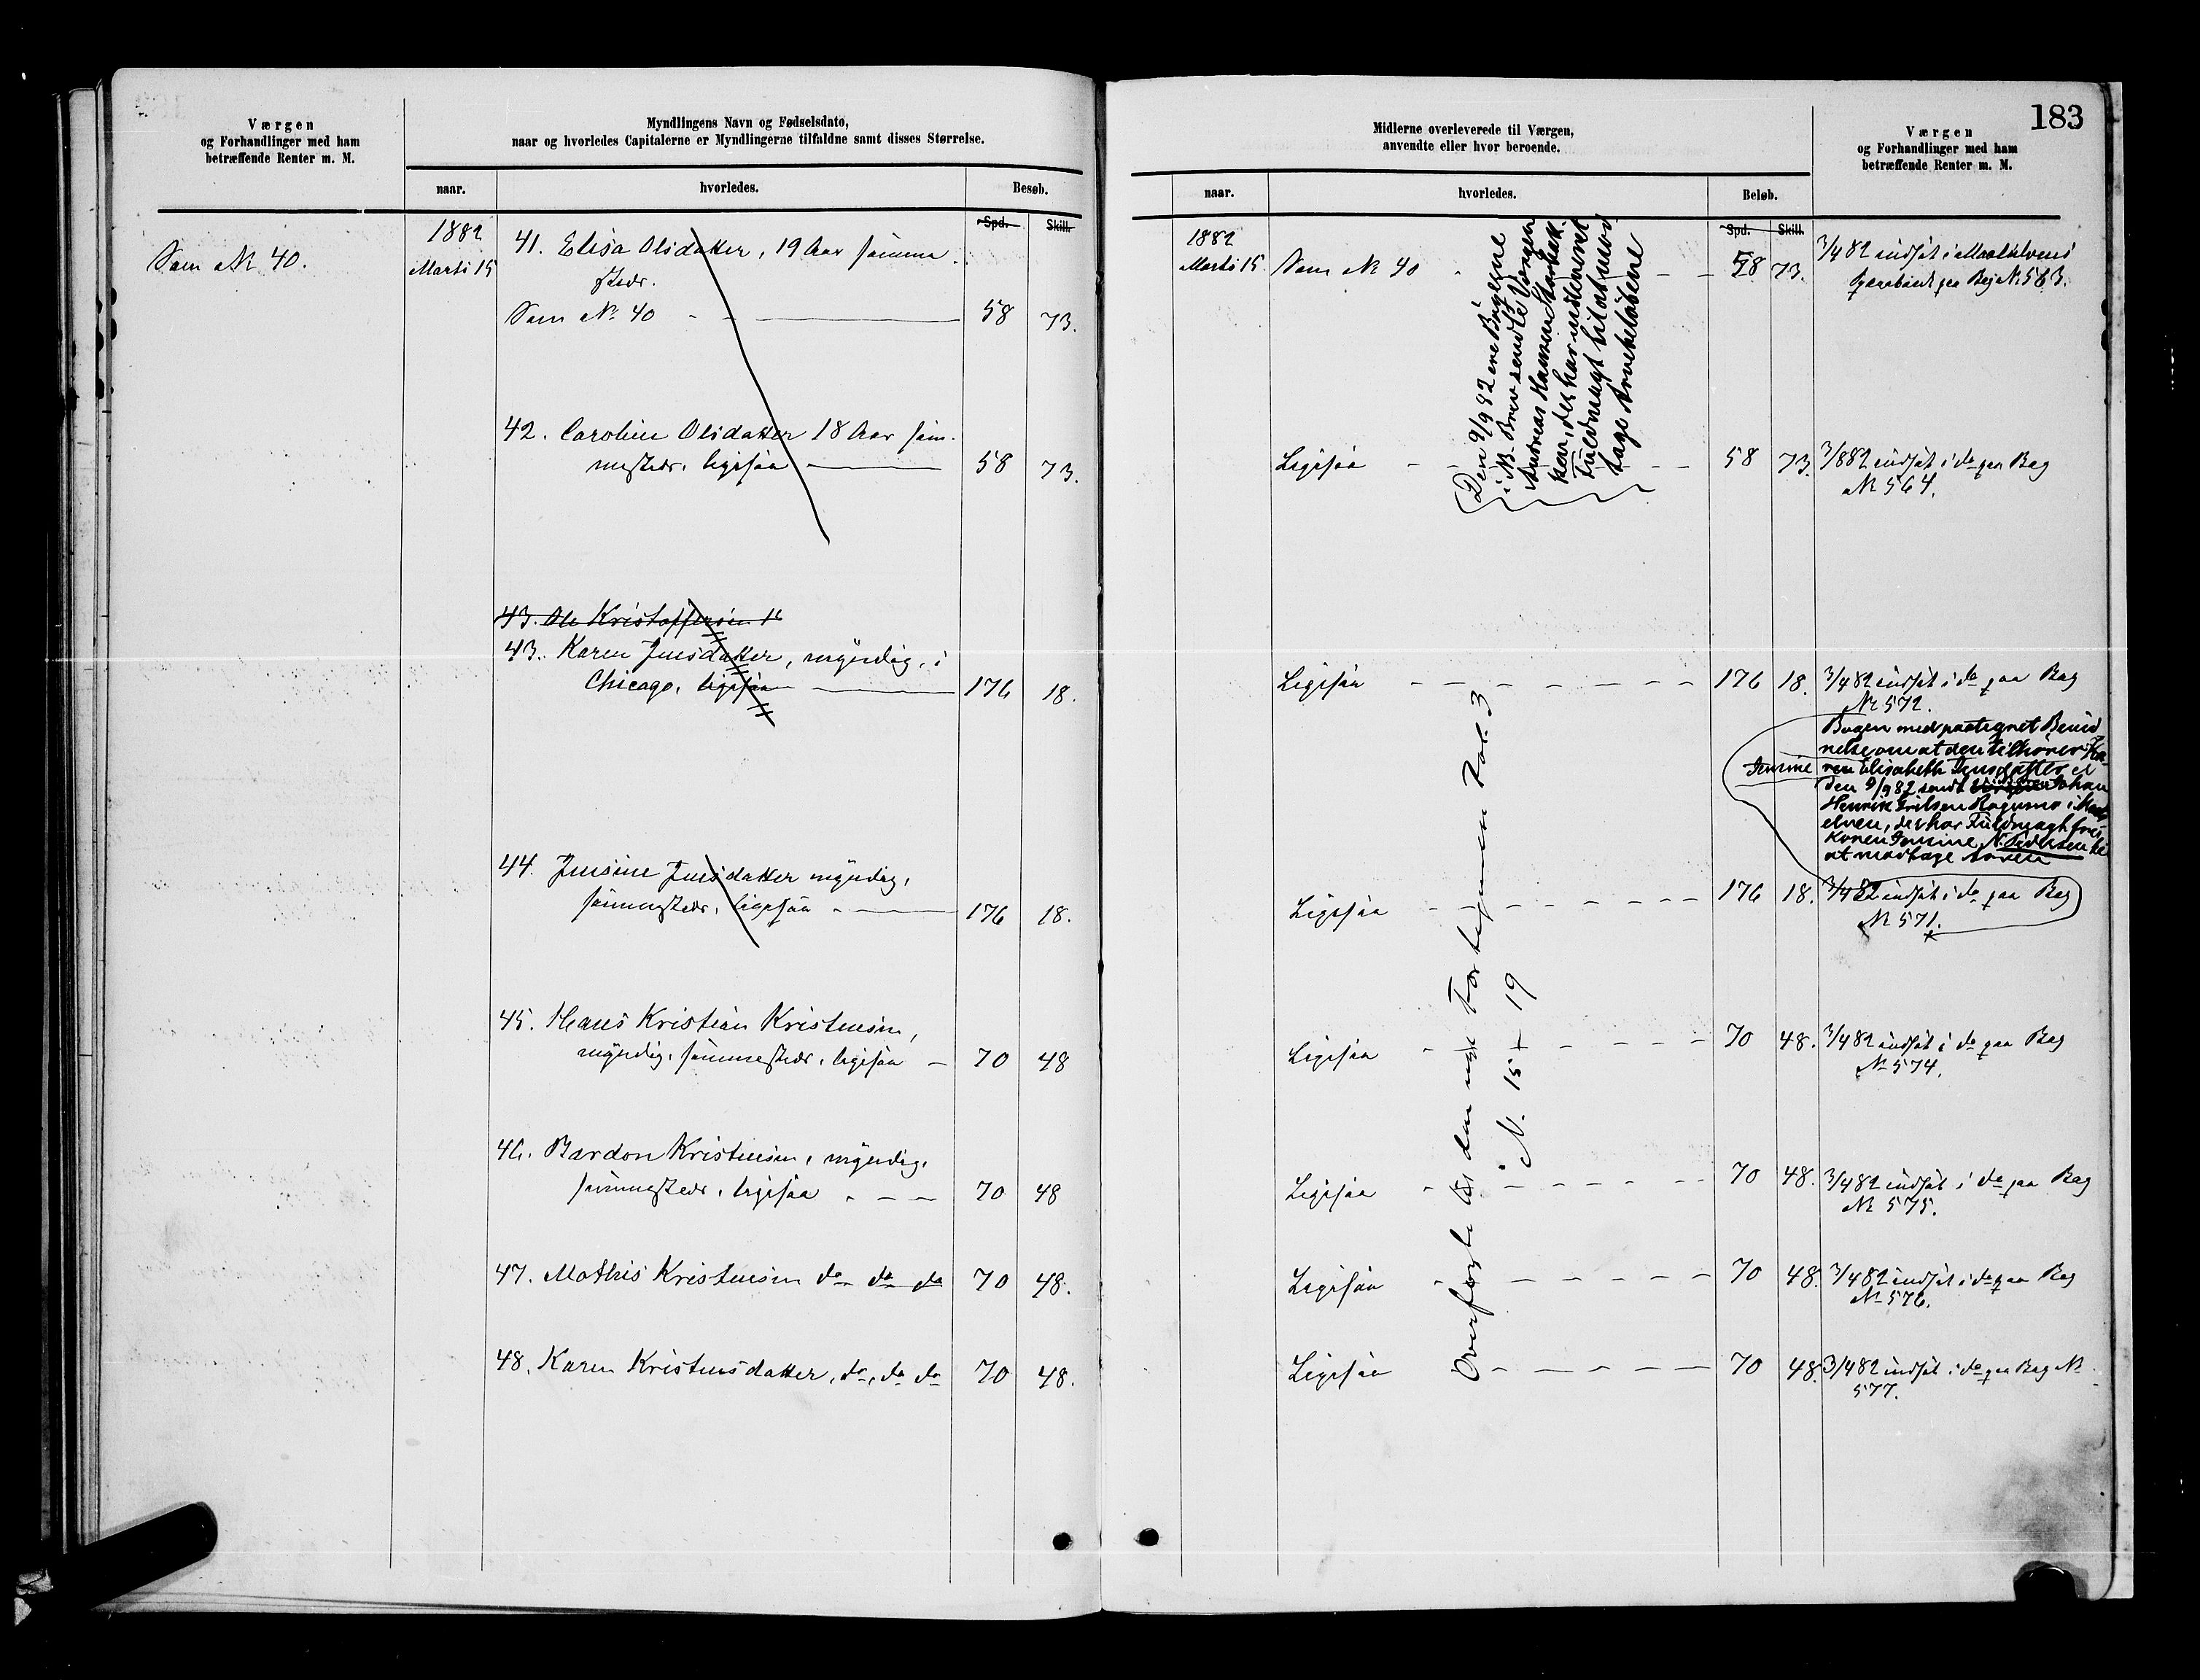 183
Værgen
og Forhandlinger med ham
betræffende Renter m. M.
Myndlingens Navn og Fødselsdato,
naar og hvorledes Capitalerne er Myndlingerne tilfaldne samt disses Størrelse.
naar.
hvorledes.
Besøb.
Spd. Skill.
Som No 40.
1882
Marts 15
41. Elisa Olsdatter, 19 Aar samme
steds.
Som No 40 58 73.
42. Caroline Olsdatter 18 Aar sam-
mesteds, ligesaa 58 73.
43. Ole Kristoffersen 16
43. Karen Jensdatter, myndig, i
Chicago, ligesaa 176 18.
44. Jensine Jensdatter myndig,
sammesteds, ligesaa 176 18.
45. Hans Kristian Kristensen,
myndig, sammesteds, ligesaa 70 48
46. Bardon Kristensen, myndig,
sammesteds, ligesaa 70 48
47. Mathis Kristensen do do do 70 48.
48. Karen Kristensdatter, do, do do 70 48.
Midlerne overleverede til Værgen,
anvendte eller hvor beroende.
Værgen
og Forhandlinger med ham
betræffende Renter m. M.
naar.
hvorledes.
Beløb.
Spd. Skill.
1882
Marts 15 Som No 40 58 73. 3/4 82 indsat i Maalselvens
Sparebank paa Bog No 563.
Den 9/9 82 ere Bøgerne
i N.B. Brev sendte Værgen
Andreas Hansen
ken, der har meddelt
Fuldmagt til at mod
tage Arvebeløbene
Ligesaa 58 73. 3/882 indsat i do paa Bog
No 564.
Ligesaa 176 18. 3/482 indsat i do paa Bog
Nr 572.
Bogen med paategnet Bevid
nelse om at den tilhører Ka-
Jensine ren Elisabeth Jensdatter er
den 9/9 82 sendt Johan
Henrik i Maals
elven, der har Fuldmagt fra
Konen Jensine N. Pedersen til
at modtage Arven
Ligesaa 176 18. 3/482 indsat i do paa Bog
No 571.
Ligesaa 70 48. 3/482 indsat i do paa Bog
No 574.
Ligesaa 70 48. 3/482 indsat i do paa Bog
No 575.
Ligesaa 70 48. 3/482 indsat i do paa Bog
No 576.
Ligesaa 70 48. 3/482 indsat i do paa Bog No
577.
Overførte til den nye Fortegnelse Fol. 3
N. 15 + 19